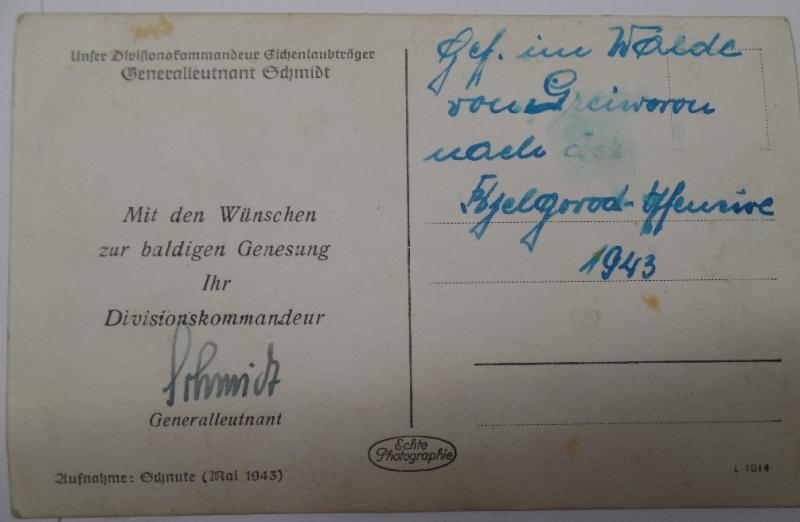 Unser Divisionskommandeur Eichenlaubträger
Generalleutnant Schmidt
Mit den Wünschen
zur baldigen Genesung
Ihr
Divisionskommandeur
Schmidt
Generalleutnant
Aufnahme: Schnute (Mai 1943)
Echte
Photographie
Gef. im Walde
von Greiworon
nach der
Bjelgorod-Offensive
1943
L 1014